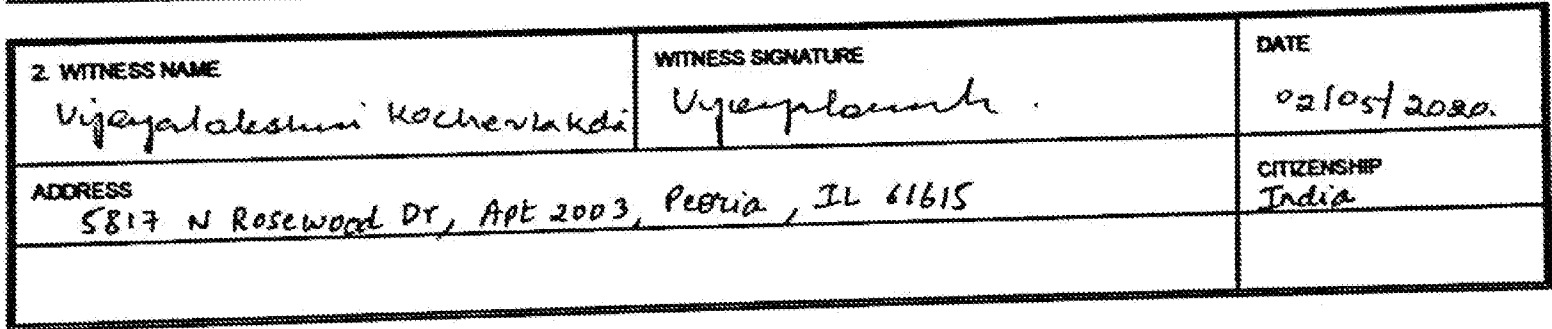 2. WITNESS NAME
Vijayalakshmi Kocherlakota
WITNESS SIGNATURE
DATE
02/05/2020.
ADDRESS
5817 N Rosewood Dr, Apt 2003, Peoria, IL 61615
CITIZENSHIP
India